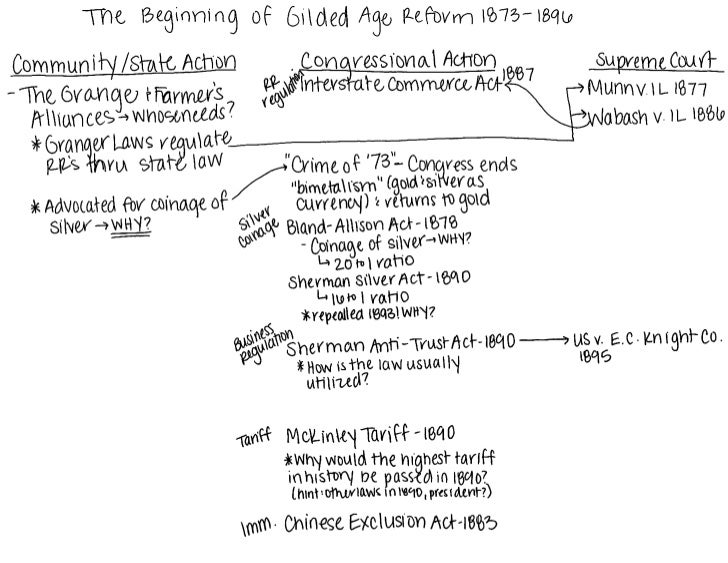 The Beginning of Gilded Age Reform 1873-1896
Community/State Action
- The Grange & Farmer's
Alliances → whose needs?
* Granger Laws regulate
RR's thru state law
* Advocated for coinage of
silver → WHY?
Congressional Action
RR
regulation
Interstate Commerce Act 1887
"Crime of '73" - Congress ends
"bimetalism" (gold & silver as
currency) & returns to gold
Silver
Coinage
Bland-Allison Act - 1878
- Coinage of silver → WHY?
↳ 20 to 1 ratio
Sherman Silver Act - 1890
↳ 16 to 1 ratio
* repealled 1893! WHY?
Business
Regulation
Sherman Anti-Trust Act - 1890
* How is the law usually
utilized?
Tariff
McKinley Tariff - 1890
* Why would the highest tariff
in history be passed in 1890?
(hint: other laws in 1890, president?)
Imm.
Chinese Exclusion Act - 1883
Supreme Court
Munn v. IL 1877
Wabash v. IL 1886
US v. E.C. Knight Co.
1895